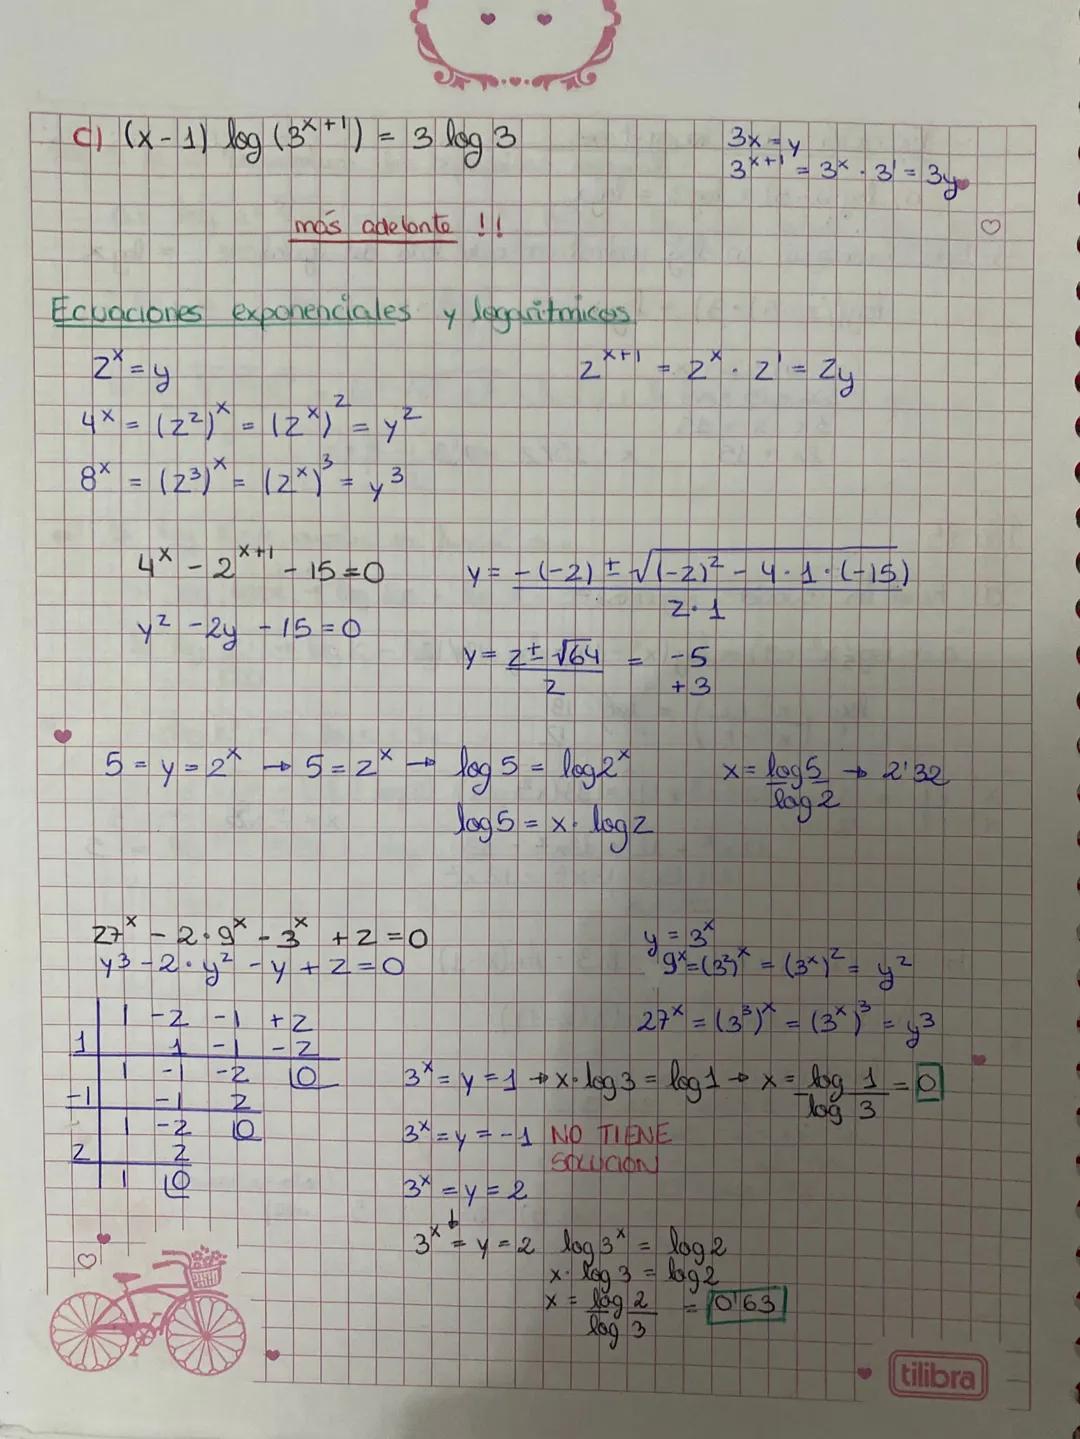 c) (x-1) log (3^{x+1}) = 3 log 3
3x = y
3^{x+1} = 3^x · 3^1 = 3y
más adelante !!
Ecuaciones exponenciales y logarítmicas
2^x = y
2^{x+1} = 2^x · 2^1 = 2y
4^x = (2^2)^x = (2^x)^2 = y^2
8^x = (2^3)^x = (2^x)^3 = y^3
4^x - 2^{x+1} - 15 = 0
y = -(-2) ± √((-2)^2 - 4·1·(-15)) / 2·1
y^2 - 2y - 15 = 0
y = 2 ± √64 / 2 = -5
+3
5 = y = 2^x → 5 = 2^x → log 5 = log 2^x
x = log 5 / log 2 → 2'32
log 5 = x · log 2
27^x - 2·9^x - 3^x + 2 = 0
y^3 - 2·y^2 - y + 2 = 0
y = 3^x
9^x = (3^2)^x = (3^x)^2 = y^2
27^x = (3^3)^x = (3^x)^3 = y^3
1 -2 -1 +2
1 1 -1 -2
1 -1 -2 0
-1 -1 2
1 -2 0
2 2
1 0
3^x = y = 1 → x · log 3 = log 1 → x = log 1 / log 3 = 0
3^x = y = -1 NO TIENE
SOLUCION
3^x = y = 2
↓
3^x = y = 2 log 3^x = log 2
x · log 3 = log 2
x = log 2 / log 3 = 0'63
tilibra